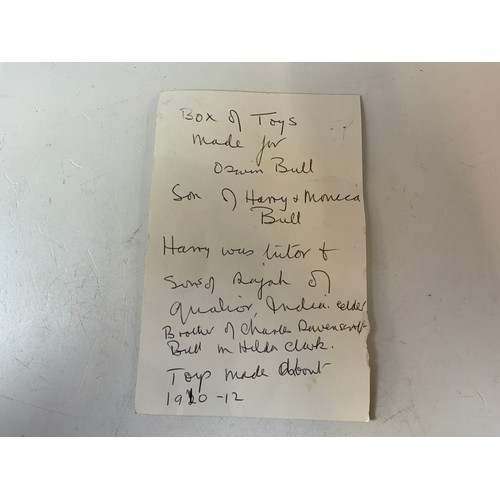 Box of Toys
made for
Oswin Bull
Son of Harry & Monica
Bull
Harry was tutor to
Sons of Rajah of
Qualior, India. elder
Brother of Charles Ravenscroft
Bull m Hilda Clark.
Toys made about
1910-12